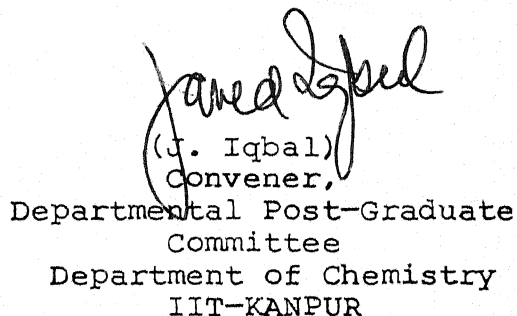 Javed Iqbal
(J. Iqbal)
Convener,
Departmental Post-Graduate
Committee
Department of Chemistry
IIT-KANPUR